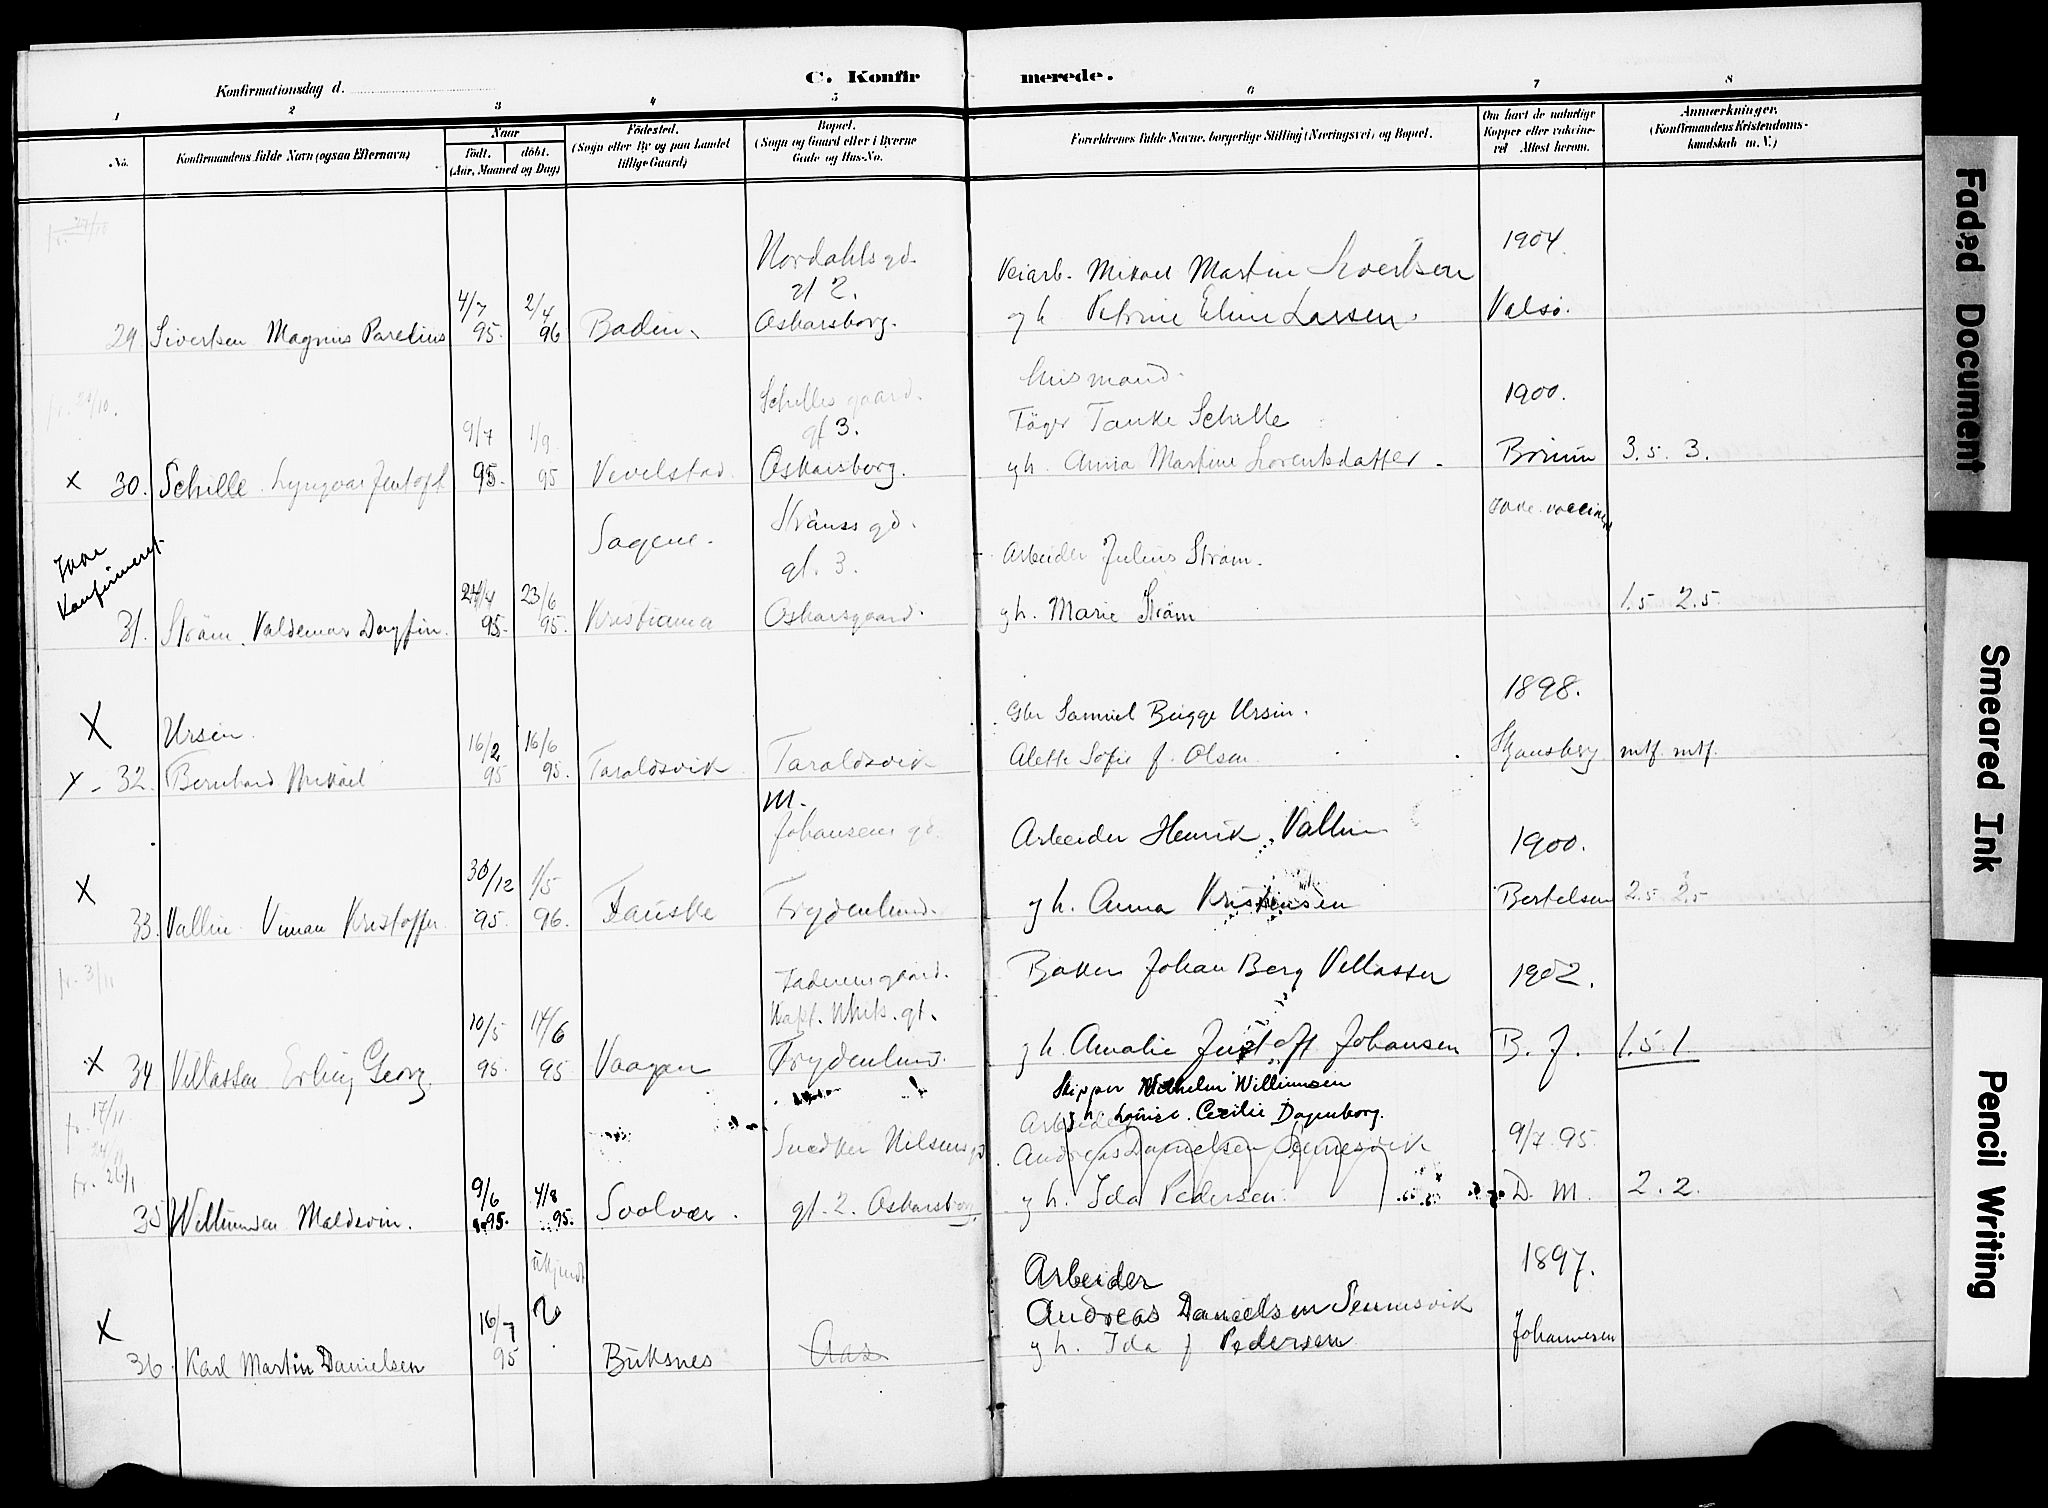 C. Konfirmerede.
Konfirmationsdag d.
1 2 3 4 5 6 7 8
No.
Konfirmandens fulde Navn (ogsaa Efternavn)
Naar
født. døbt.
(Aar, Maaned og Dag)
Fødested.
(Sogn eller By og paa Landet
tillige Gaard)
Bopæl.
(Sogn og Gaard eller i Byerne
Gade og Hus-No.
Forældrenes fulde Navne, borgerlige Stilling (Næringsvei) og Bopæl.
Om havt de naturlige
Kopper eller vakcine-
ret Attest herom.
Anmærkninger.
(Konfirmandens Kristendoms-
kundskab m. V.)
Nordahls gd.
gt 2.
Oskarsborg.
29 Sivertsen Magnus Parelius
4/7 95. 2/4 96
Bodin
Veiarb. Mikael Martin Sivertsen
g h. Petrine Eline Larsen.
1904.
Valsø.
Schilles gaard.
gt 3.
Oskarsborg.
x 30. Schille Lyngvar Jentoft
9/7 95. 1/9 95
Vevelstad
Husmand.
Tøger Tanke Schille
g h. Anna Martine Lorentsdatter.
1900.
Brinn
3.5 3.
Ikke
Konfirmeret
31. Strøm, Valdemar Dagfin.
24/4 95. 23/6 95.
Sagene.
Kristiania
Strauss gd.
gt. 3.
Oskarsgaard.
Arbeider Julius Strøm.
g h. Marie Strøm
Ikke vaccineret
1.5 2.5
X
Ursin
x - 32. Bernhard Mikael
16/2 95 16/6 95.
Taraldsvik
Taraldsvik
Gbr Samuel Bugge Ursin.
Aleth Sofie f. Olsen
1898.
mtf. mtf.
M.
Johansens gd.
Frydenlund.
X
33. Vallin Kristoffer
30/12 95. 1/5 96.
Fauske
Arbeider Henrik Vallin
g h. Anna Kristensen
1900.
Bertelsen
2.5 2.5
fr. 3/11
x 34 Vellassen Erling Georg
10/5 95. 14/6 95
Vaagan
gt.
Frydenlund.
Baker Johan Berg Vellassen
g h. Amalie Jentoft Johansen
1902.
B. J.
1.5 1
fr. 17/11
24/11
fr. 26/1
35 Williumsen Maldevin.
9/6 95. 4/8 95.
Svolvær.
Snedker Nilsens gd
gt. 2. Oskarsborg.
Skipper Vilhelm Williumsen
h Louise Cecilie Dagenborg.
Arbeider
Andreas Danielsen Sennesvik
g h. Ida Pedersen
9/7 95
D. M.
2. 2.
X
36. Karl Martin Danielsen
16/7 95
ukjendt
?
Buksnes
Aas
Arbeider
Andreas Danielsen Sennesvik
g h. Ida f Pedersen
1897.
Johannesen
Faded Document
Smeared Ink
Pencil Writing